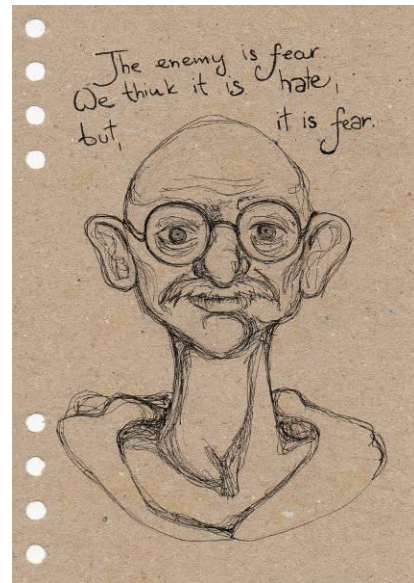 The enemy is fear.
We think it is hate,
but, it is fear.